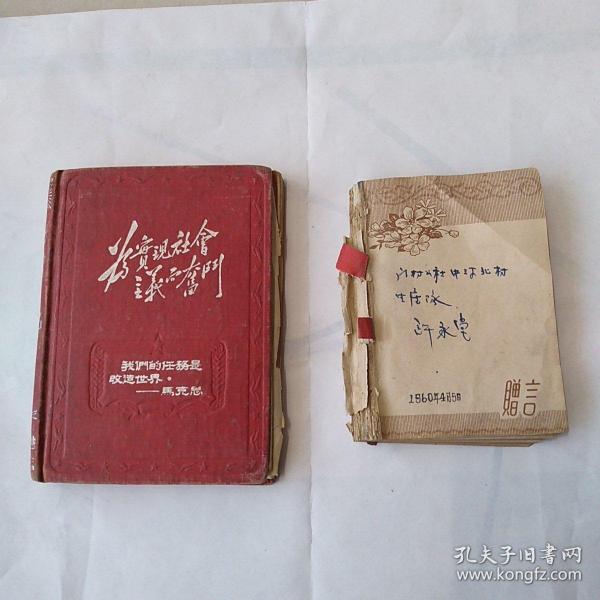 為實現社會
主義而奮鬥
我們的任務是
改造世界。
——馬克思
村公社中
北村
生產隊
許永
1960年4月5日
贈言
孔夫子旧书网
www.kongfz.com